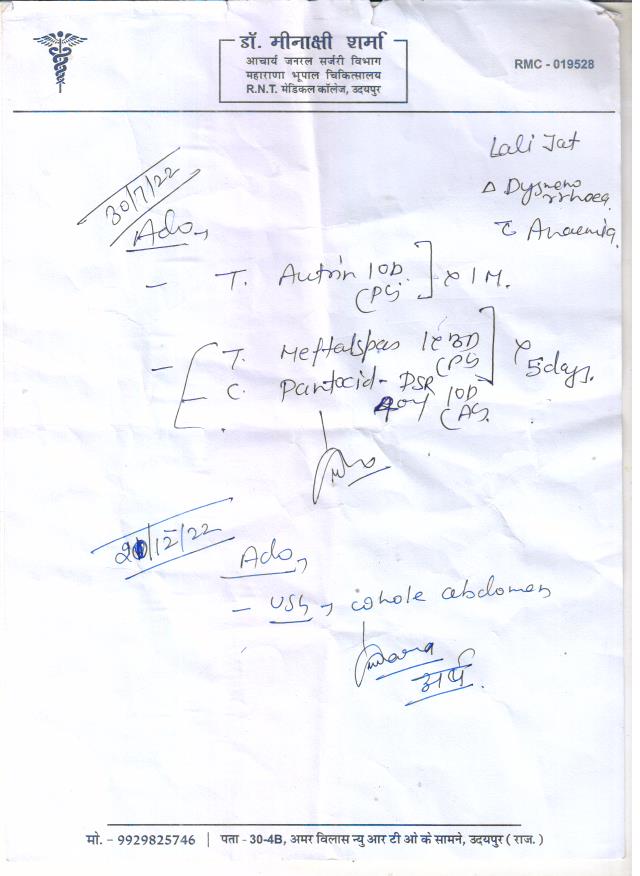 डॉ. मीनाक्षी शर्मा
आचार्य जनरल सर्जरी विभाग
महाराणा भूपाल चिकित्सालय
R.N.T. मेडिकल कॉलेज, उदयपुर
RMC - 019528
Lali Jat
Δ Dysmeno
rrhoea
c Anaemia
30/7/22
Ado,
- T. Autrin 1OD ] x 1M.
(PC)
- T. Meftalspas 1 BD
(PC) ] x 5days.
C. Pantocid-DSR
40 1OD
(AC)
/12/22
Ado,
- USG → whole abdomen
मो. - 9929825746 | पता - 30-4B, अमर विलास न्यु आर टी ओ के सामने, उदयपुर ( राज. )